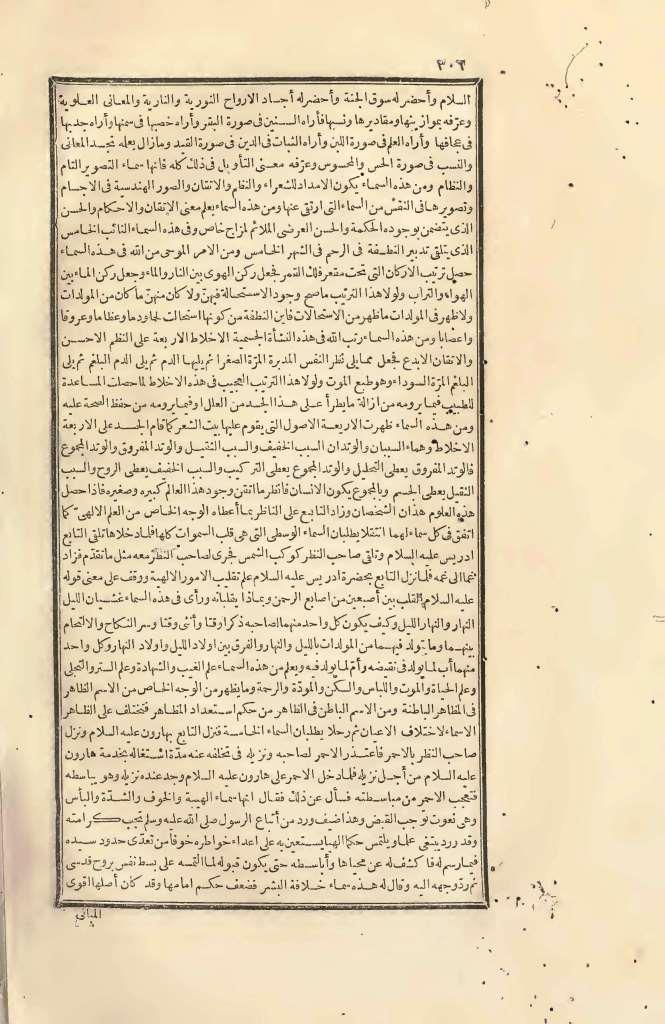 ٣٠٦
السلام وأحضر له سوق الجنة وأحضر له أجساد الارواح النورية والنارية والمعانى العلوية
وعرّفه بموازينها ومقاديرها ونسبها فأراه السنين فى صورة البقر وأراه خصبها فى سمنها وأراه جدبها
فى عجافها وأراه العلم فى صورة اللبن وأراه الثبات فى الدين فى صورة القيد ومازال يعلمه تجسد المعانى
والنسب فى صورة الحس والمحسوس وعرّفه معنى التأويل فى ذلك كله فانها سماء التصوير التام
والنظام ومن هذه السماء يكون الامداد للشعراء والنظام والاتقان والصور الهندسية فى الاجسام
وتصويرها فى النفس من السماء التى ارتقى عنها ومن هذه السماء يعلم معنى الاتقان والاحكام والحسن
الذى يتضمن بوجوده الحكمة والحسن العرضى الملائم لمزاج خاص وفى هذه السماء النائب الخامس
الذى يتلقى تدبير النطفة فى الرحم فى الشهر الخامس ومن الامر الموحى من الله فى هذه السماء
حصل ترتيب الاركان التى تحت مقعر فلك القمر فجعل ركن الهوى بين النار والماء وجعل ركن الماء بين
الهواء والتراب ولولا هذا الترتيب ماصح وجود الاستحالة فيهنّ ولا كان منهنّ ما كان من المولدات
ولا ظهر فى المولدات ماظهر من الاستحالات فأين النطفة من كونها استحالت لحما ودما وعظاما وعروقا
واعصابا ومن هذه السماء رتب الله فى هذه النشأة الجسمية الاخلاط الاربعة على النظم الاحسن
والاتقان الابدع فجعل ممايلى نظر النفس المدبرة المرّة الصفرا ثم يليها الدم ثم يلى الدم البلغم ثم يلى
البلغم المرّة السوداء وهو طبع الموت ولولا هذا الترتيب العجيب فى هذه الاخلاط لما حصلت المساعدة
للطبيب فيما يرومه من ازالة مايطرأ على هذا الجسد من العلل او فيما يرومه من حفظ الصحة عليه
ومن هذه السماء ظهرت الاربعة الاصول التى يقوم عليها بيت الشعر كما قام الجسد على الاربعة
الاخلاط وهما السببان والوتدان السبب الخفيف والسبب الثقيل والوتد المفروق والوتد المجموع
فالوتد المفروق يعطى التحليل والوتد المجموع يعطى التركيب والسبب الخفيف يعطى الروح والسبب
الثقيل يعطى الجسم وبالمجموع يكون الانسان فانظر ما اتقن وجود هذا العالم كبيره وصغيره فاذا حصل
هذه العلوم هذان الشخصان وزاد التابع على الناظر بما أعطاه الوجه الخاص من العلم الالهىّ كما
اتفق فى كل سماء لهما انتقلا يطلبان السماء الوسطى التى هى قلب السموات كلها فلما دخلاها تلقى التابع
ادريس عليه السلام وتلقى صاحب النظر كوكب الشمس فجرى لصاحب النظر معه مثل ماتقدم فزاد
غما الى غمه فلما نزل التابع بحضرة ادريس عليه السلام علم تقليب الامور الالهية ووقف على معنى قوله
عليه السلام القلب بين أصبعين من اصابع الرحمن وبماذا يقلبانه ورأى فى هذه السماء غشيان الليل
النهار والنهار الليل وكيف يكون كل واحد منهما لصاحبه ذكرا وقتا وأنثى وقتا وسرّ النكاح والالتحام
بينهما وما يتولد فيهما من المولدات بالليل والنهار والفرق بين اولاد الليل واولاد النهار وكل واحد
منهما أب لما يولد فى نقيضه وأمّ لما يولد فيه ويعلم من هذه السماء علم الغيب والشهادة وعلم الستر والتجلى
وعلم الحياة والموت واللباس والسكن والمودّة والرحمة ومايظهر من الوجه الخاص من الاسم الظاهر
فى المظاهر الباطنة ومن الاسم الباطن فى الظاهر من حكم استعداد المظاهر فتختلف على الظاهر
الاسماء لاختلاف الاعيان ثم رحلا يطلبان السماء الخامسة فنزل التابع بهارون عليه السلام ونزل
صاحب النظر بالاحمر فاعتذر الاحمر لصاحبه ونزيله فى تخلفه عنه مدّة اشتغاله بخدمة هارون
عليه السلام من أجل نزيله فلما دخل الاحمر على هارون عليه السلام وجد عنده نزيله وهو يباسطه
فتعجب الاحمر من مباسطته فسأل عن ذلك فقال انها سماء الهيبة والخوف والشدّة والبأس
وهى نعوت توجب القبض وهذا ضيف ورد من أتباع الرسول صلى الله عليه وسلم تجب كرامته
وقد ورد يبتغى علما ويلتمس حكما الهيا يستعين به على اعداء خواطره خوفا من تعدّى حدود سيده
فيما رسم له فأكشف له عن محياها وأباسطه حتى يكون قبوله لما التمسه على بسط نفس بروح قدسى
ثم ردّ وجهه اليه وقال له هذه سماء خلافة البشر فضعف حكم امامها وقد كان أصلها اقوى
المبانى